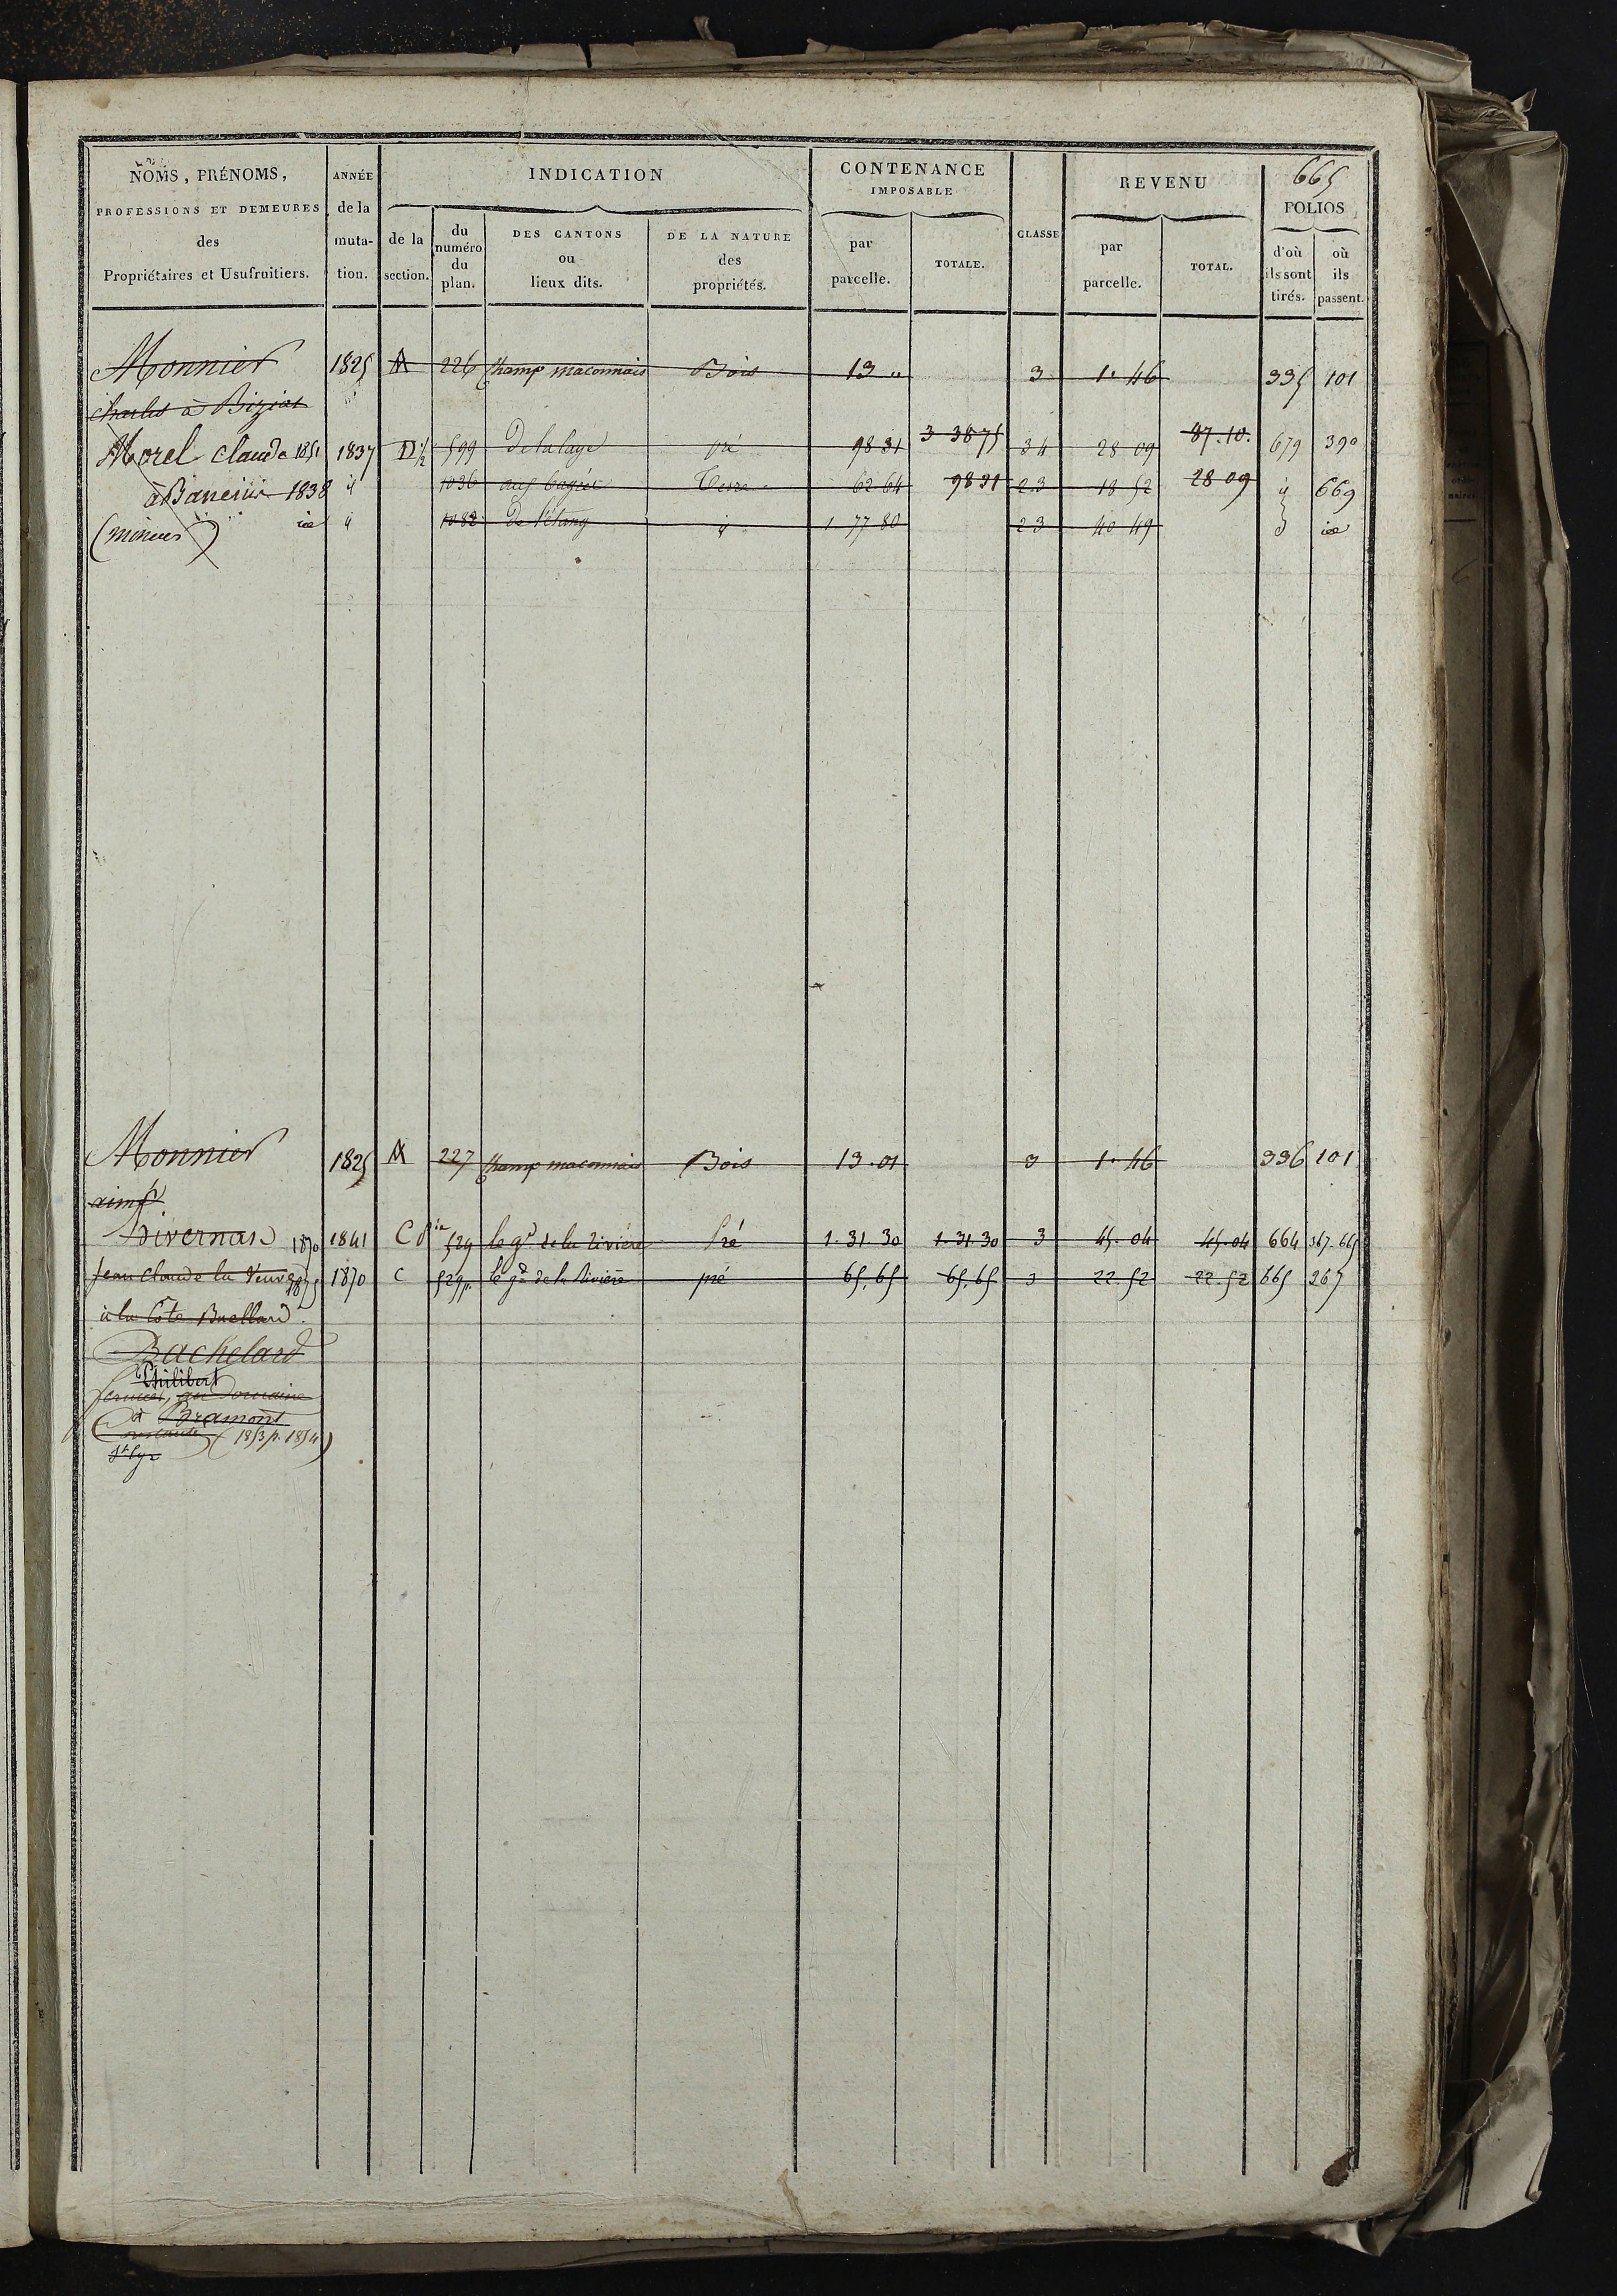 665
NOMS, PRÉNOMS, PROFESSIONS ET DEMEURES des Propriétaires et Usufruitiers.
ANNÉE de la muta-tion.
INDICATION
de la section.
du numéro du plan.
DES CANTONS ou lieux dits.
DE LA NATURE des propriétés.
CONTENANCE IMPOSABLE
par parcelle.
TOTALE.
CLASSE
REVENU
par parcelle.
TOTAL.
FOLIOS
d'où ils sont tirés.
où ils passent.
Monnier 1825 A 226 Champ maconnais Bois 13 " 3 1. 46 335 101
Charles à Biziat
Morel Claude 1851 1837 D 1/2 599 De la laye Pré 98 31 3 38 75 3 4 28 09 87. 10. 679 390
1838 " 1036 aux Terre 62 64 98 31 2 3 18 52 28 09 " 669
(mineur) id " 1082 De l'étang " 1 77 80 2 3 40 49 id
Monnier 1825 A 227 Champ maconnais Bois 13. 01 3 1. 46 336 101
aimé
Divernas 1870 1841 C 529 le gd de la rivière Pré 1. 31. 30 1. 31. 30 3 45. 04 45. 04 664 367. 665
Jean Claude la Veuve 1875 1870 C 529 p. le gd de la Rivière pré 65. 65 65. 65 3 22. 52 22. 52 665 267
à la Côte Buellard.
Bachelard
Philibert
fermier, au Domaine
à Bramont
(1853 p. 1854)
St Cyr